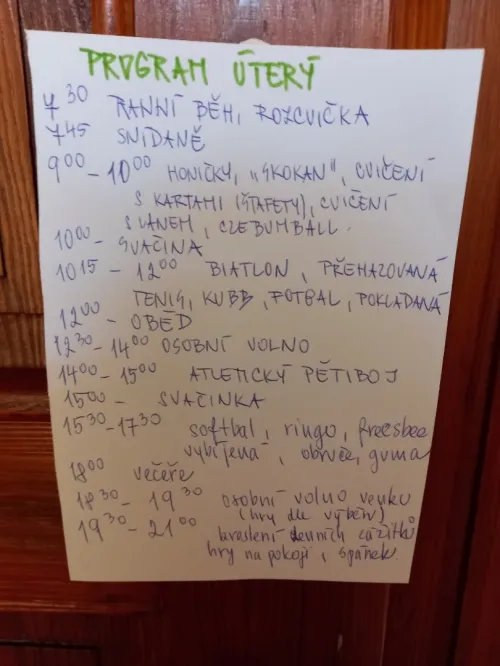 PROGRAM ÚTERÝ
7³⁰ RANNÍ BĚH, ROZCVIČKA
7⁴⁵ SNÍDANĚ
9⁰⁰ – 10⁰⁰ HONIČKY, „SKOKAN", CVIČENÍ
S KARTAMI (ŠTAFETY), CVIČENÍ
S LANEM, CZEBUMBALL.
10⁰⁰ – SVAČINA
10¹⁵ – 12⁰⁰ BIATLON, PŘEHAZOVANÁ
TENIS, KUBB, FOTBAL, POKLADANÁ
12⁰⁰ – OBĚD
12³⁰ – 14⁰⁰ OSOBNÍ VOLNO
14⁰⁰ – 15⁰⁰ ATLETICKÝ PĚTIBOJ
15⁰⁰ – SVAČINKA
15³⁰ – 17³⁰ softbal, ringo, freesbee
vybíjená, obruče, guma
18⁰⁰ večeře
18³⁰ – 19³⁰ osobní volno venku
(hry dle výběru)
19³⁰ – 21⁰⁰ kreslení denních zážitků
hry na pokoji, spánek.